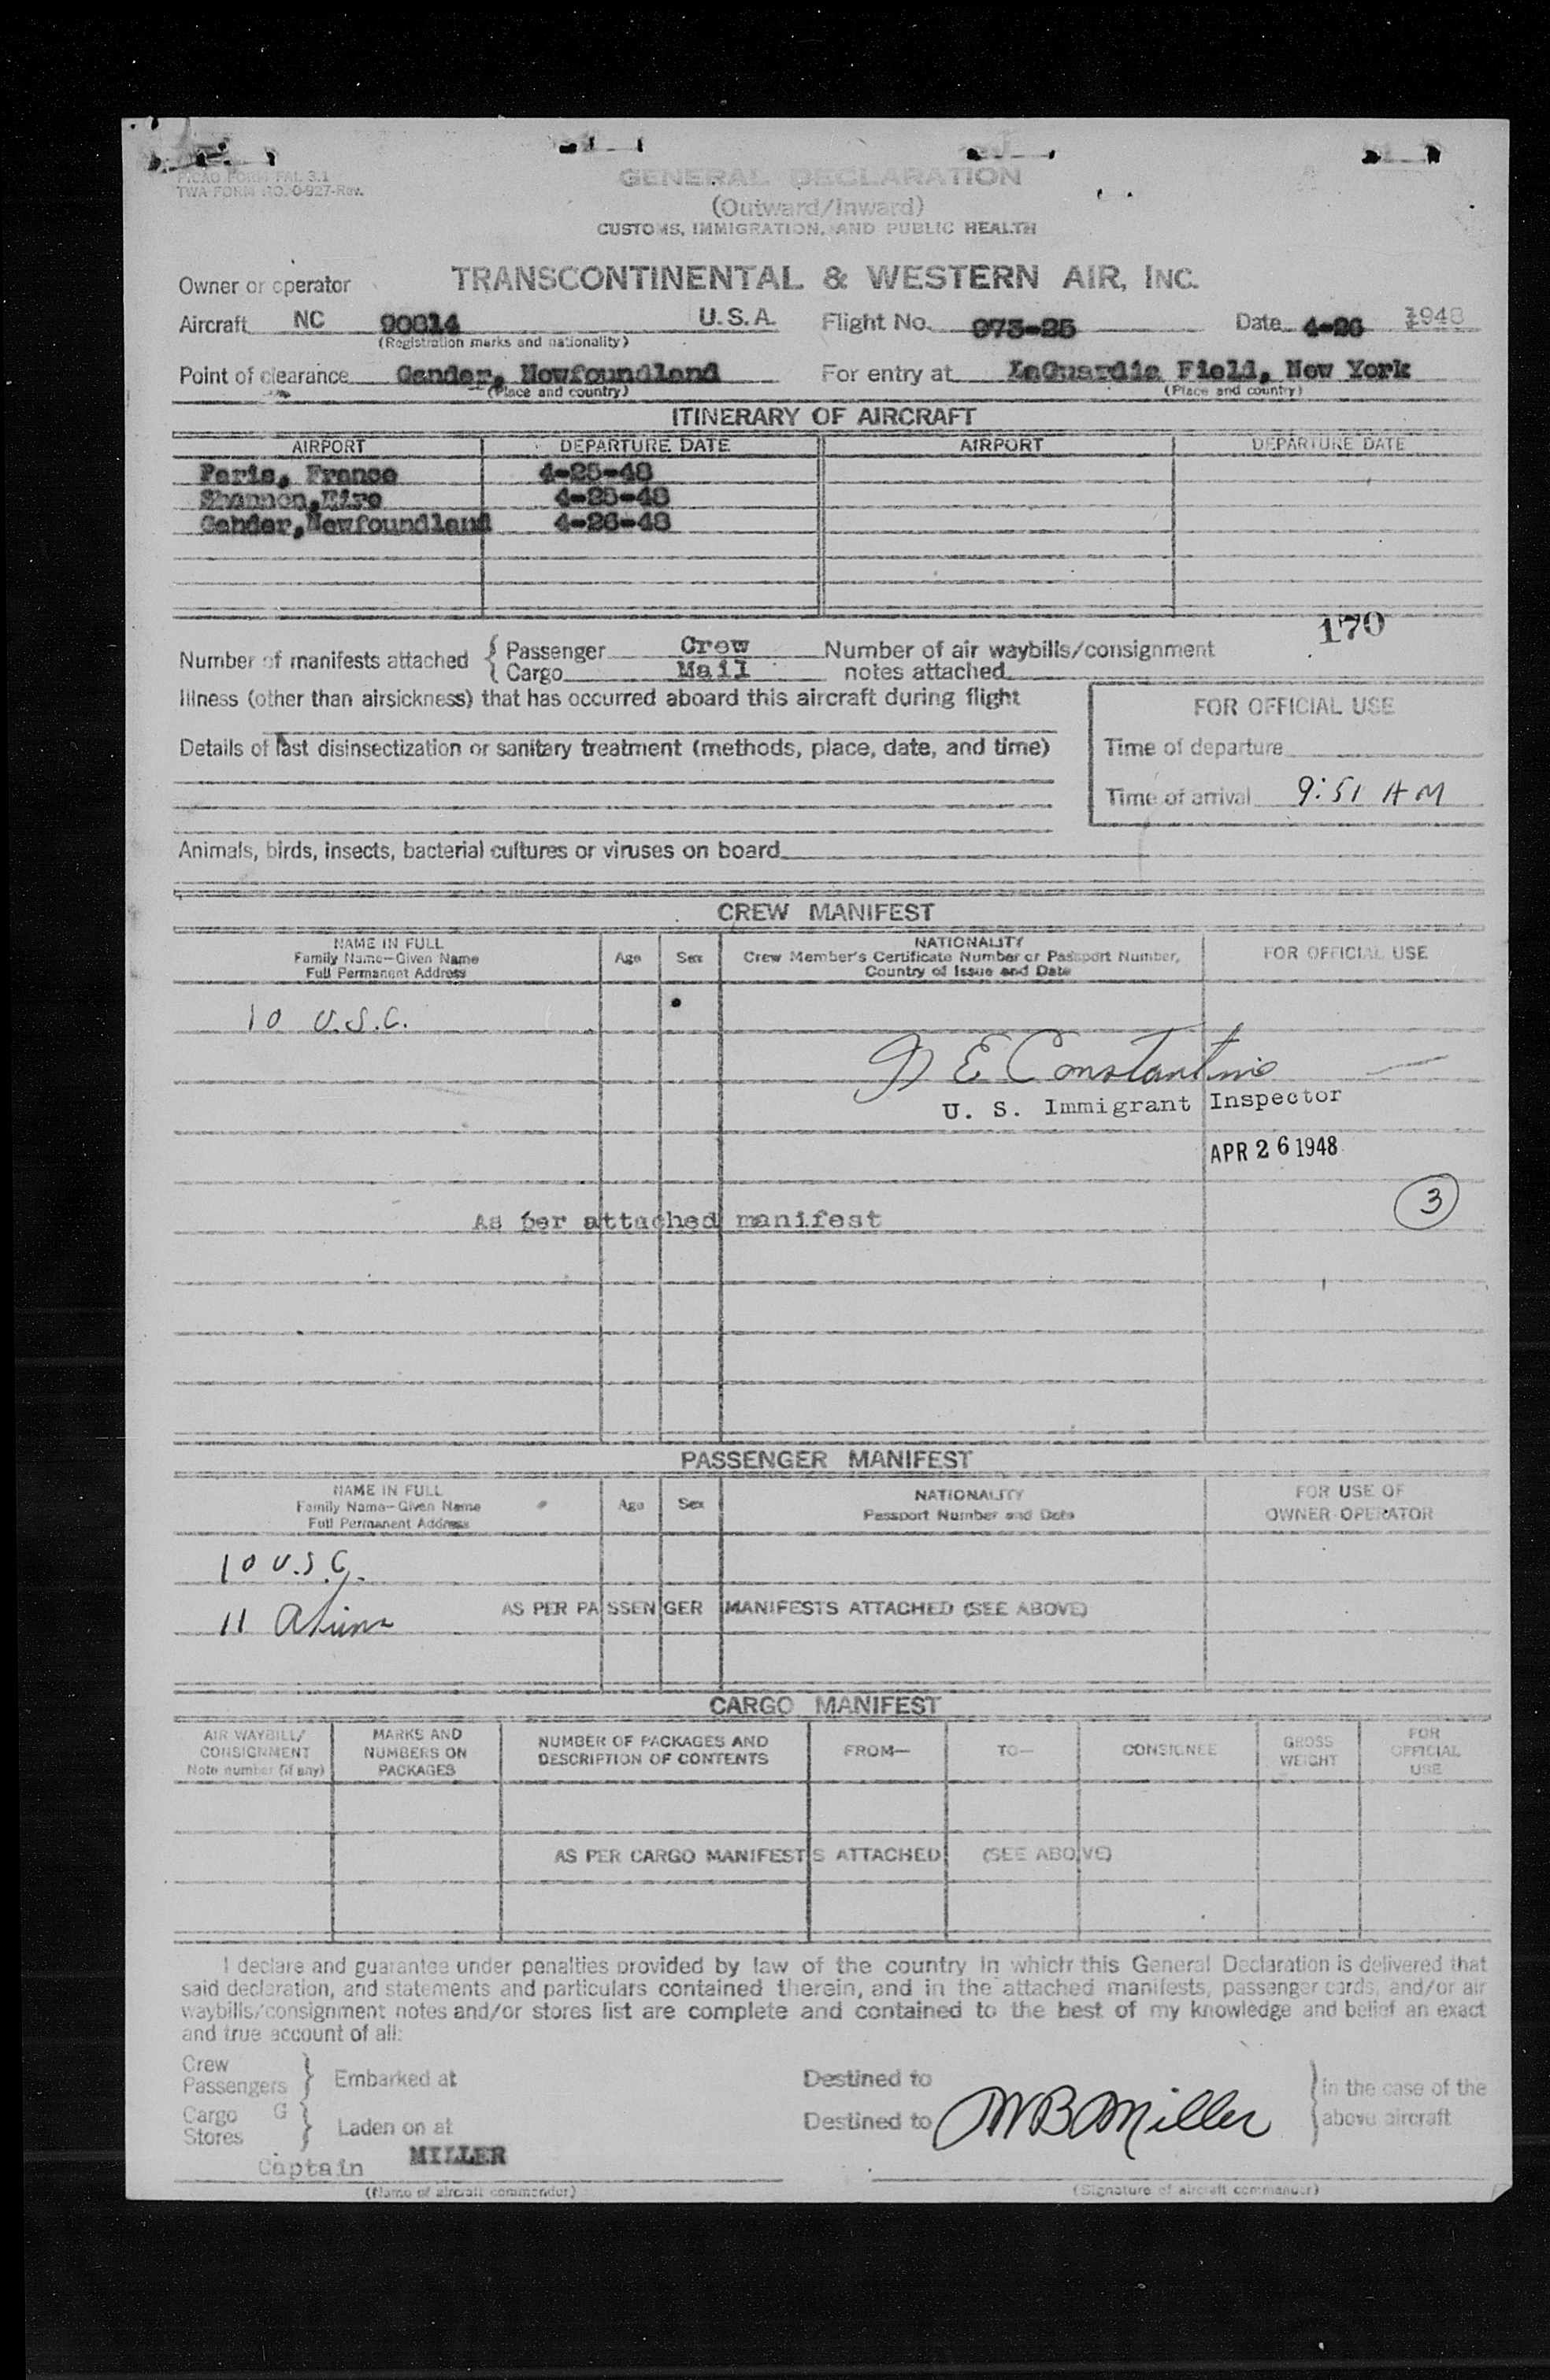 P.ICAO FORM FAL 3.1
TWA FORM NO. O-927-Rev.
GENERAL DECLARATION
(Outward/Inward)
CUSTOMS, IMMIGRATION, AND PUBLIC HEALTH
Owner or operator TRANSCONTINENTAL & WESTERN AIR, INC.
Aircraft NC 90814 U.S.A. Flight No. 973-25 Date 4-26 1948
(Registration marks and nationality)
Point of clearance Gander, Newfoundland For entry at LaGuardia Field, New York
(Place and country) (Place and country)
ITINERARY OF AIRCRAFT
AIRPORT DEPARTURE DATE AIRPORT DEPARTURE DATE
Paris, France 4-25-48
Shannon, Eire 4-25-48
Gander, Newfoundland 4-26-48
170
Number of manifests attached { Passenger Crew Number of air waybills/consignment
{ Cargo Mail notes attached
Illness (other than airsickness) that has occurred aboard this aircraft during flight
FOR OFFICIAL USE
Details of last disinsectization or sanitary treatment (methods, place, date, and time)
Time of departure
Time of arrival 9:51 AM
Animals, birds, insects, bacterial cultures or viruses on board
CREW MANIFEST
NAME IN FULL
Family Name—Given Name
Full Permanent Address
Age Sex
NATIONALITY
Crew Member's Certificate Number or Passport Number,
Country of Issue and Date
FOR OFFICIAL USE
10 U.S.C.
E Constantine
U. S. Immigrant Inspector
APR 26 1948
3
As per attached manifest
PASSENGER MANIFEST
NAME IN FULL
Family Name—Given Name
Full Permanent Address
Age Sex
NATIONALITY
Passport Number and Date
FOR USE OF
OWNER-OPERATOR
10 U.S.C.
11 Aliens
AS PER PASSENGER MANIFESTS ATTACHED (SEE ABOVE)
CARGO MANIFEST
AIR WAYBILL/
CONSIGNMENT
Note number (if any)
MARKS AND
NUMBERS ON
PACKAGES
NUMBER OF PACKAGES AND
DESCRIPTION OF CONTENTS
FROM—
TO—
CONSIGNEE
GROSS
WEIGHT
FOR
OFFICIAL
USE
AS PER CARGO MANIFESTS ATTACHED (SEE ABOVE)
I declare and guarantee under penalties provided by law of the country in which this General Declaration is delivered that
said declaration, and statements and particulars contained therein, and in the attached manifests, passenger cards, and/or air
waybills/consignment notes and/or stores list are complete and contained to the best of my knowledge and belief an exact
and true account of all:
Crew
Passengers } Embarked at Destined to
Cargo G
Stores } Laden on at Destined to
WB Miller
} in the case of the
above aircraft
Captain MILLER
(Name of aircraft commander) (Signature of aircraft commander)